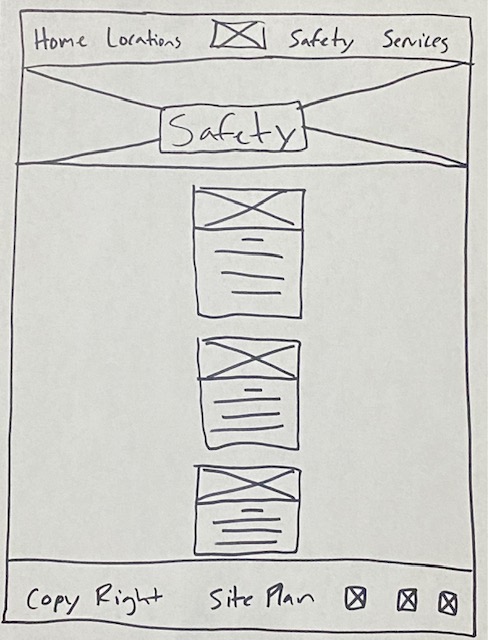 Home Locations Safety Services
Safety
Copy Right Site Plan